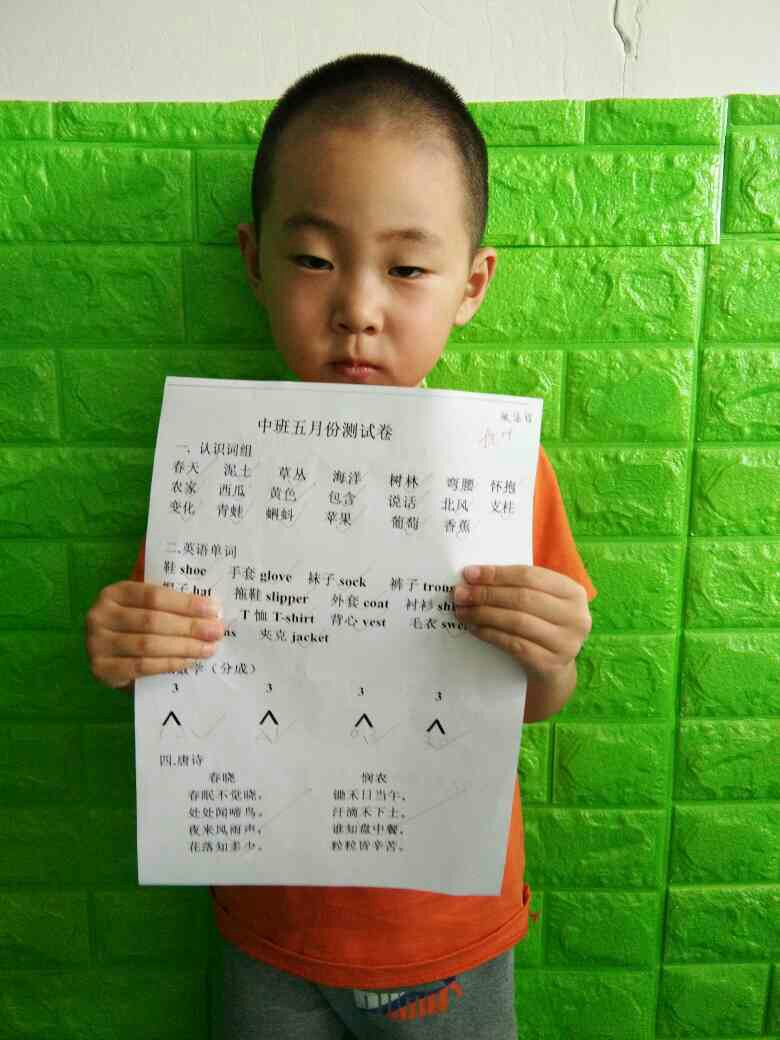 中班五月份测试卷
一、认识词组
春天 泥土 草丛 海洋 树林 弯腰 怀抱
农家 西瓜 黄色 包含 说话 北风 支柱
变化 青蛙 蝌蚪 苹果 葡萄 香蕉
二.英语单词
鞋 shoe 手套 glove 袜子 sock 裤子
hat 拖鞋 slipper 外套 coat 衬衫
T 恤 T-shirt 背心 vest 毛衣
夹克 jacket
（分成）
3 3 3 3
四.唐诗
春晓 悯农
春眠不觉晓， 锄禾日当午，
处处闻啼鸟。 汗滴禾下土。
夜来风雨声， 谁知盘中餐，
花落知多少。 粒粒皆辛苦。